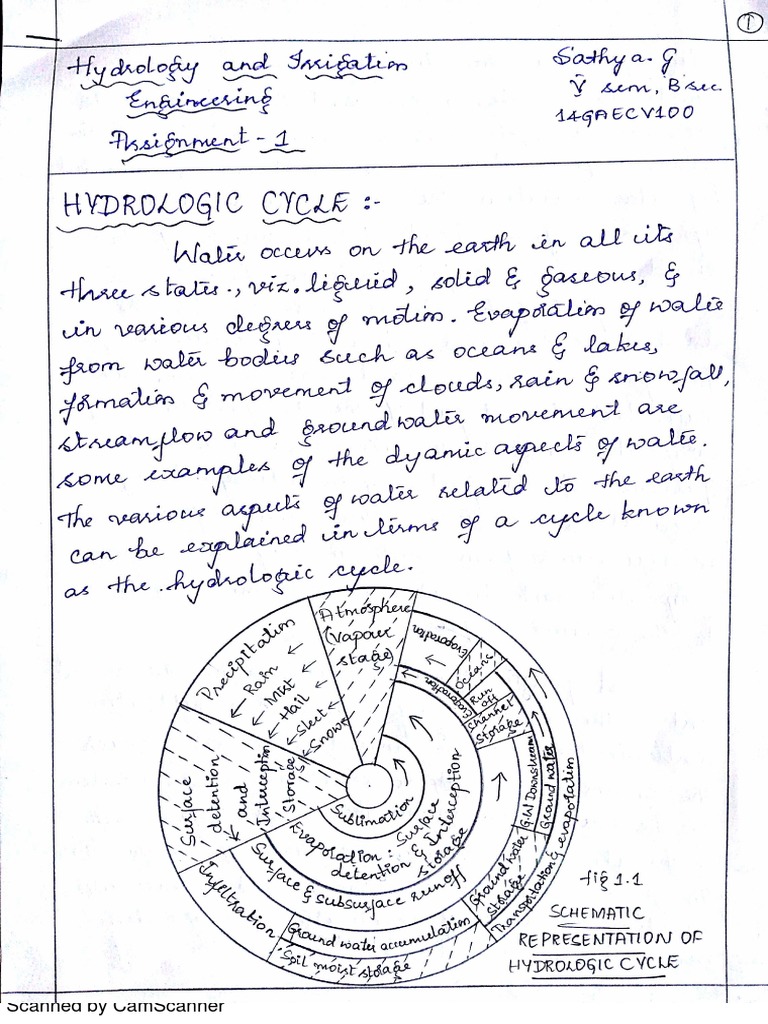 1
Hydrology and Irrigation
Engineering
Assignment - 1
Sathya. G
V sem, B sec.
14GAECV100
HYDROLOGIC CYCLE :-
Water occurs on the earth in all its
three states., viz. liquid, solid & gaseous, &
in various degrees of motion. Evaporation of water
from water bodies such as oceans & lakes,
formation & movement of clouds, rain & snowfall,
streamflow and groundwater movement are
some examples of the dyamic aspects of water.
The various aspects of water related to the earth
can be explained in terms of a cycle known
as the hydrologic cycle.
Atmosphere
(vapour
stage)
Precipitation
Rain
Mist
Hail
Sleet
Snow
Surface
detention
and
Interception
Storage
Infiltration
Soil moist storage
Ground water accumulation
Surface & subsurface runoff
Evaporation: Surface
detention & Interception
storage
Sublimation
Evaporation
Oceans
Evaporation
Run
off
Channel
Storage
G.W Downstream
Ground water
Ground water
Storage
Transpotation & evaporation
fig 1.1
SCHEMATIC
REPRESENTATION OF
HYDROLOGIC CYCLE
Scanned by CamScanner